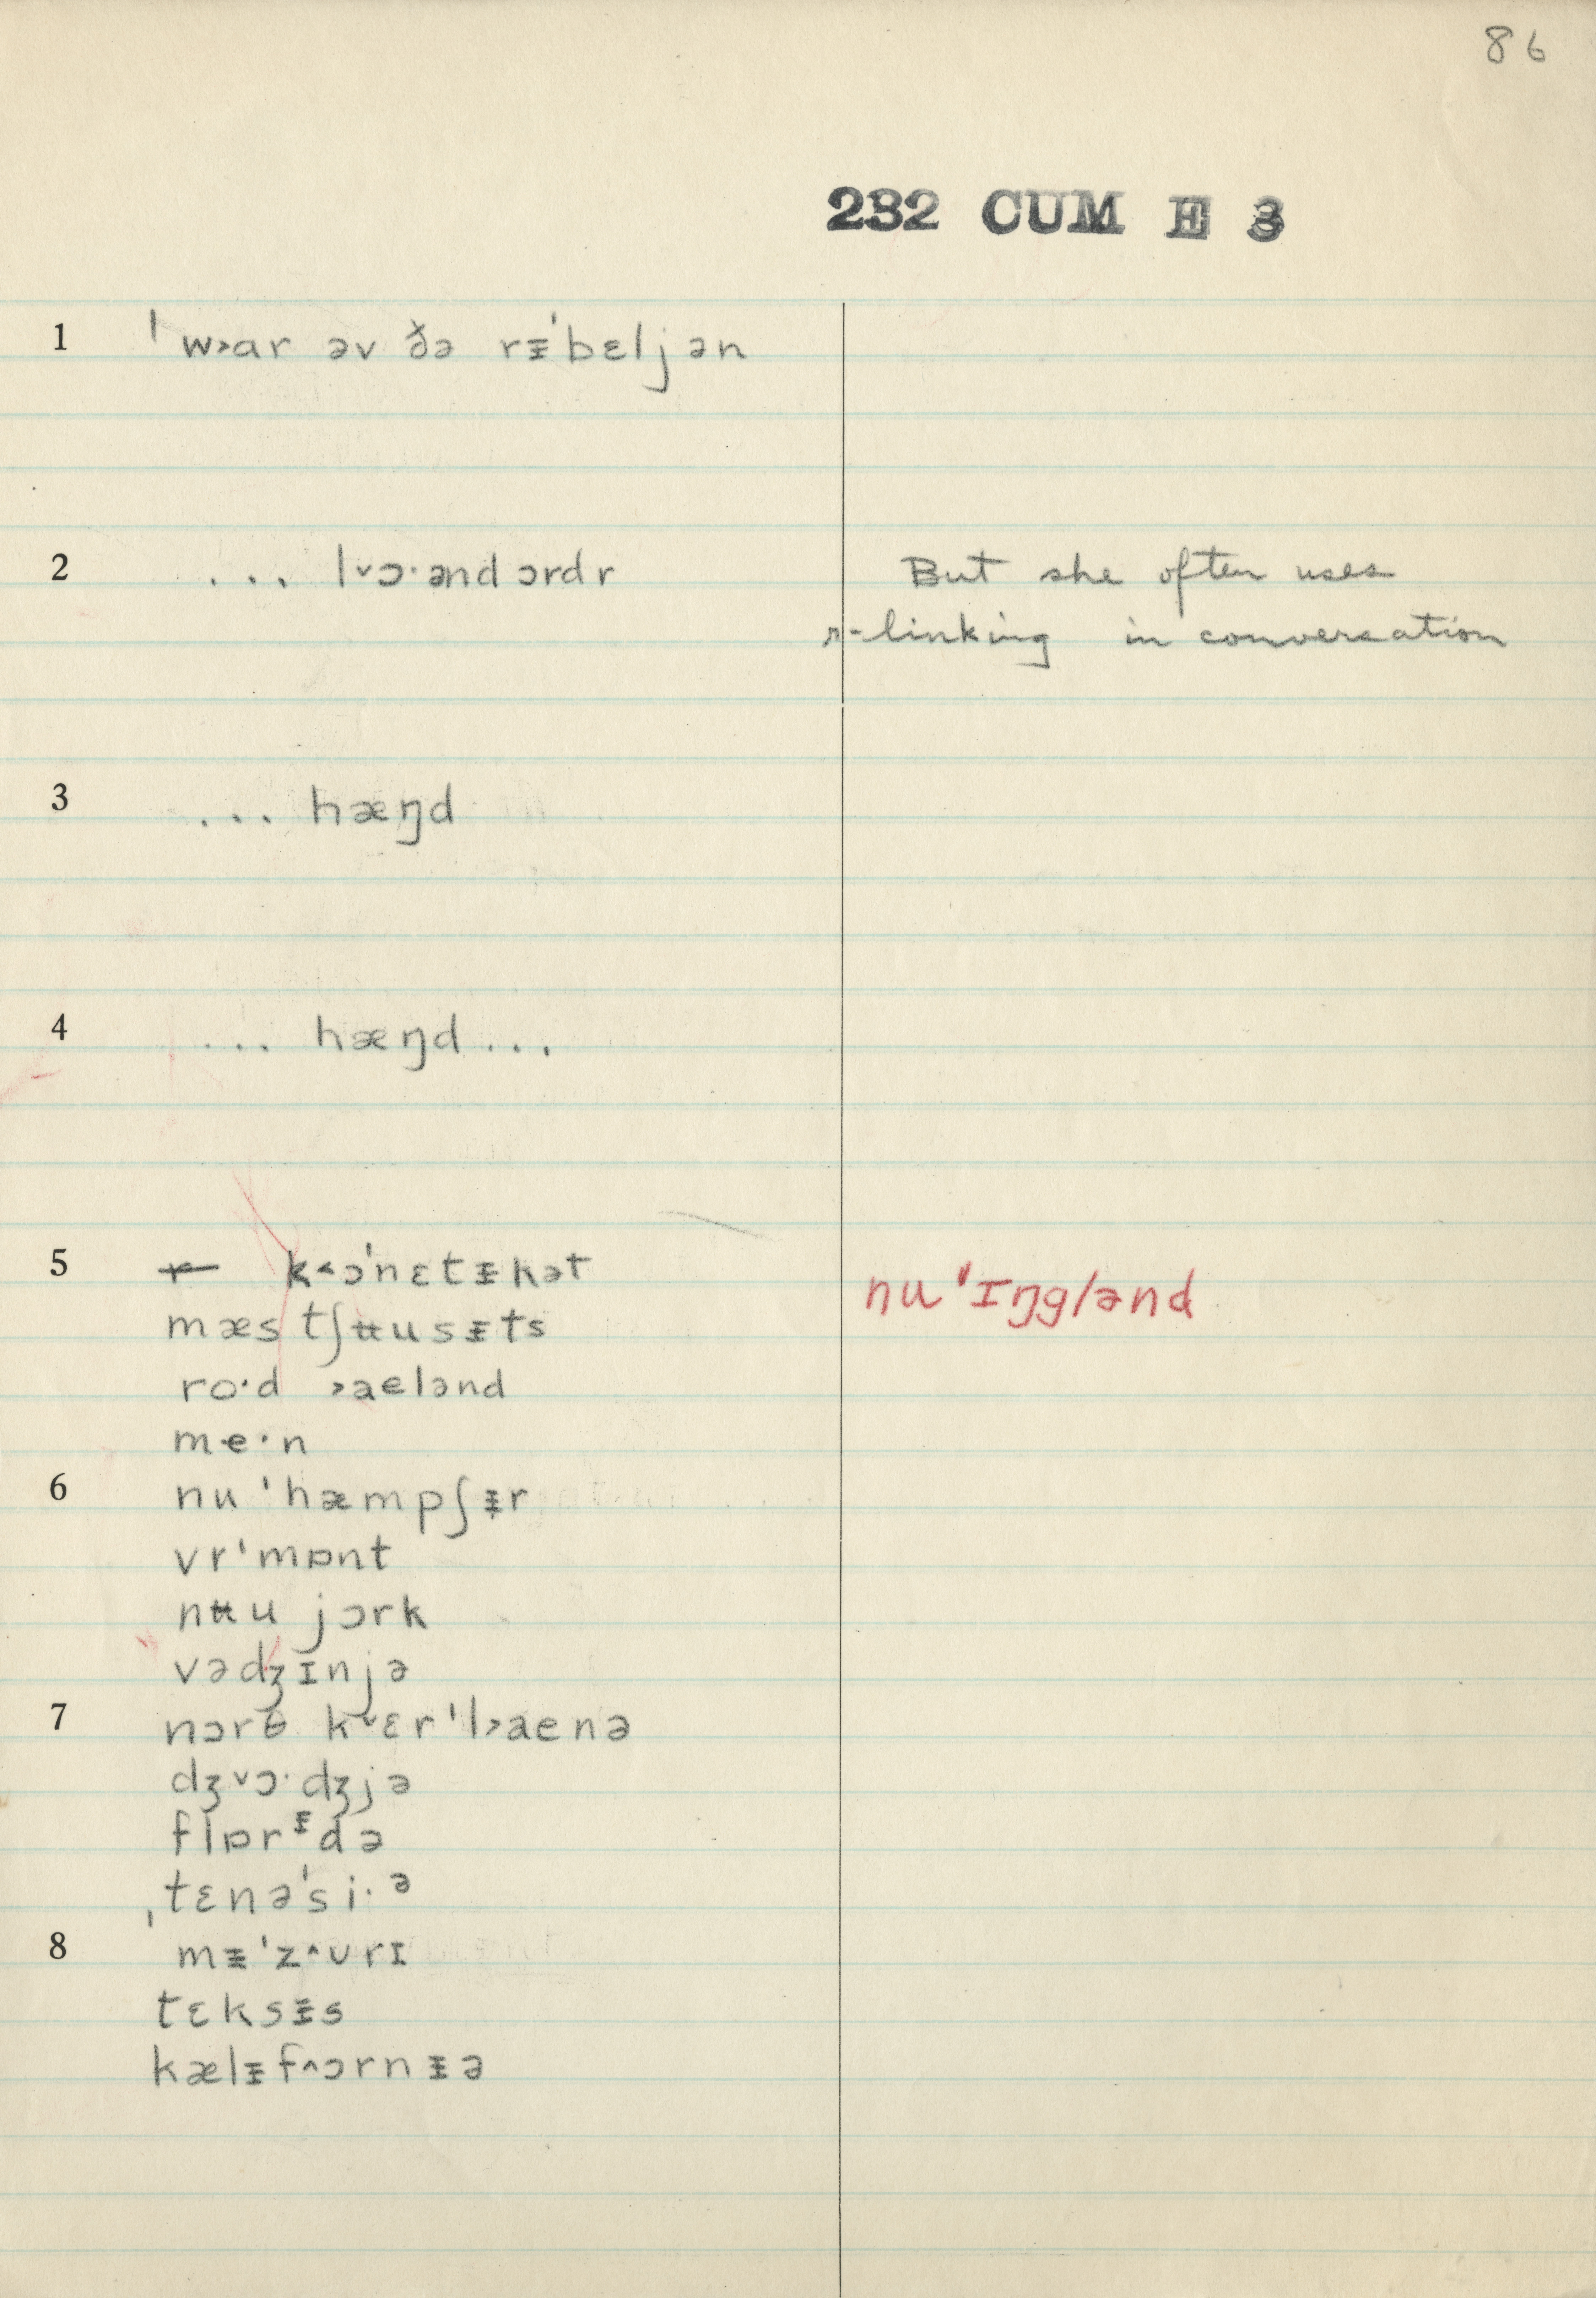 86
232 CUM E 3
1 ˈw˃ar əv ðə rᵻˈbɛljən
2 ... l˅ɔ·ənd ɔrdr
But she often uses
r-linking in conversation
3 ... hæŋd
4 ... hæŋd ...
5 k˂ɔˈnɛtᵻkət
nuˈɪŋglənd
mæstʃʉusᵻts
ro·d ˃aelənd
me·n
6 nuˈhæmpʃᵻr
vrˈmɒnt
nʉu jɔrk
vədʒɪnjə
7 nɔrθ k˅ɛrˈl˃aenə
dʒ˅ɔ·dʒjə
flɒrᵻdə
ˌtɛnəˈsi·ə
8 mᵻˈz˄ʊrɪ
tɛksᵻs
kælᵻf˄ɔrnᵻə